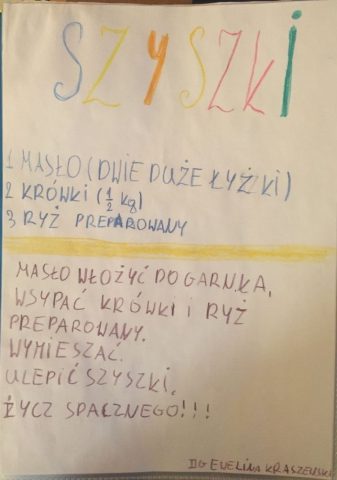 SZYSZKI
1 MASŁO (DWIE DUŻE ŁYŻKI)
2 KRÓWKI (½ kg)
3 RYŻ PREPAROWANY
MASŁO WŁOŻYĆ DO GARNKA,
WSYPAĆ KRÓWKI I RYŻ
PREPAROWANY.
WYMIESZAĆ.
ULEPIĆ SZYSZKI.
ŻYCZ SPACZNEGO!!!
DG EWELINA KRASZEWSKI